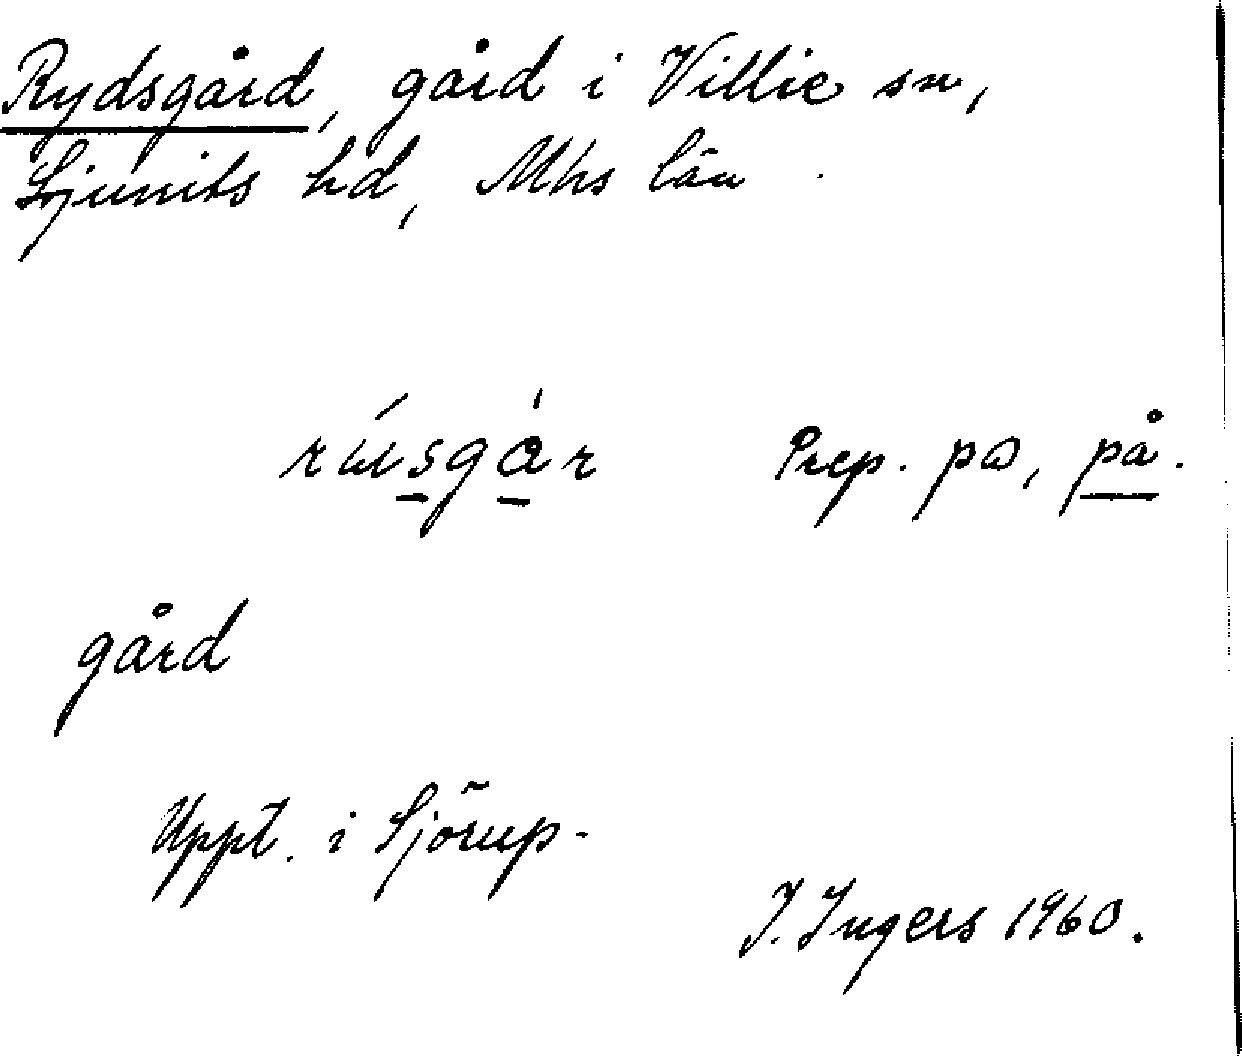 Rydsgård, gård i Villie sn,
Ljunits hd, Mhs län.
rúisgár Prep. pa, på.
gård
Uppt. i Sjörup.
I. Ingers 1960.